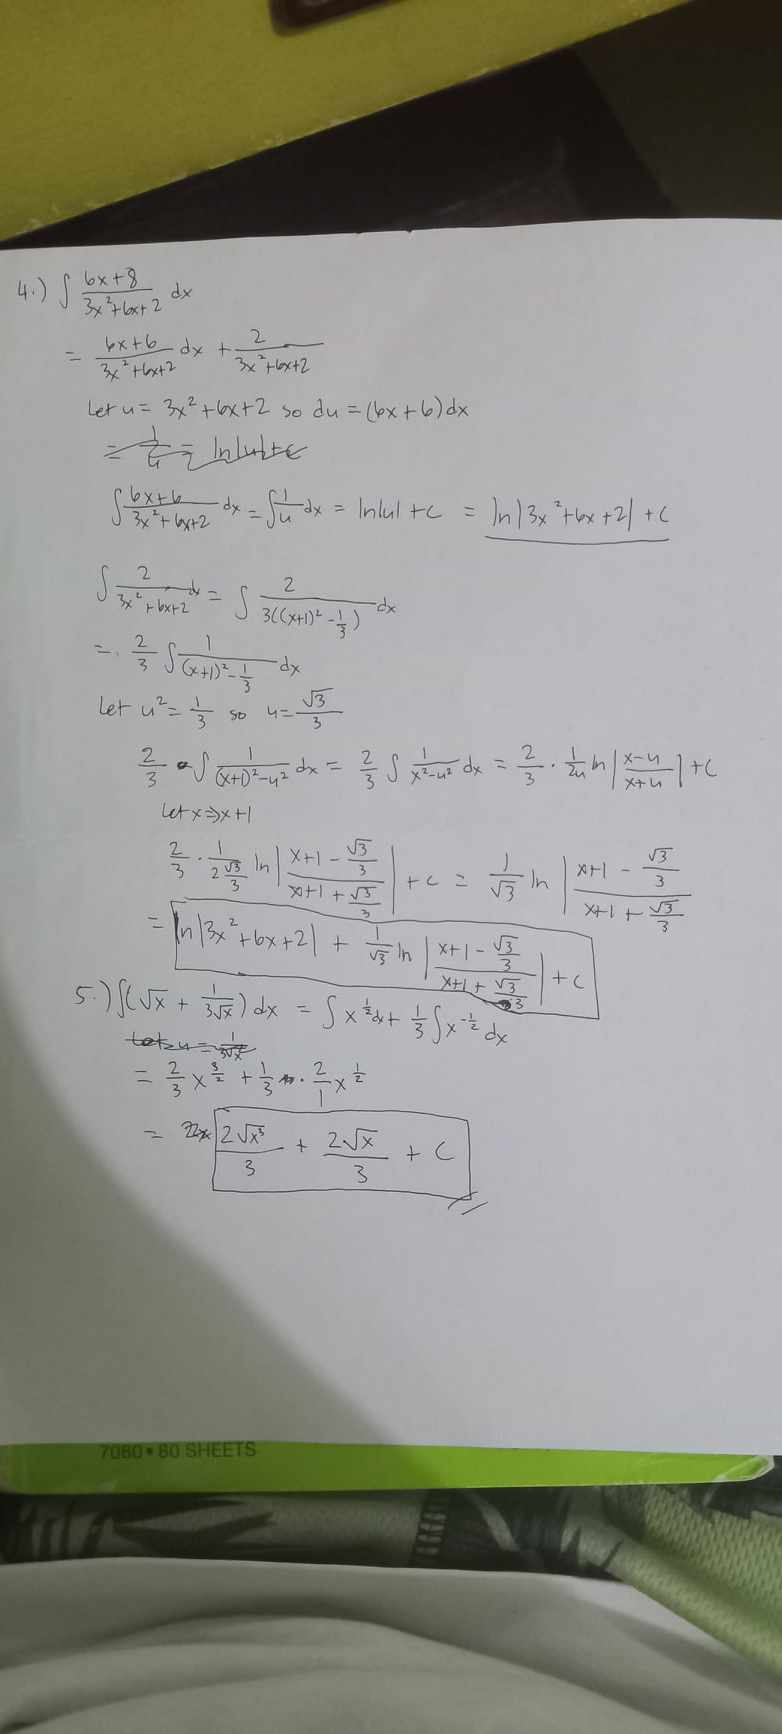 4.) ∫ (6x+8)/(3x²+6x+2) dx
= (6x+6)/(3x²+6x+2) dx + 2/(3x²+6x+2)
Let u = 3x²+6x+2 so du = (6x+6)dx
∫ (6x+6)/(3x²+6x+2) dx = ∫ 1/u dx = ln|u| + c = ln|3x²+6x+2| + c
∫ 2/(3x²+6x+2) dx = ∫ 2/(3((x+1)²-1/3)) dx
= . 2/3 ∫ 1/((x+1)²-1/3) dx
Let u² = 1/3 so u = √3/3
2/3 ∫ 1/((x+1)²-u²) dx = 2/3 ∫ 1/(x²-u²) dx = 2/3 · 1/(2u) ln|(x-u)/(x+u)| + C
Let x => x+1
2/3 · 1/(2 √3/3) ln|(x+1 - √3/3)/(x+1 + √3/3)| + c = 1/√3 ln|(x+1 - √3/3)/(x+1 + √3/3)
= ln|3x²+6x+2| + 1/√3 ln|(x+1 - √3/3)/(x+1 + √3/3)| + C
5.) ∫(√x + 1/(3√x)) dx = ∫ x^(1/2) dx + 1/3 ∫ x^(-1/2) dx
Let u = 1/(3√x)
= 2/3 x^(3/2) + 1/3 · 2/1 x^(1/2)
= 2√x³/3 + 2√x/3 + C
7080 • 80 SHEETS